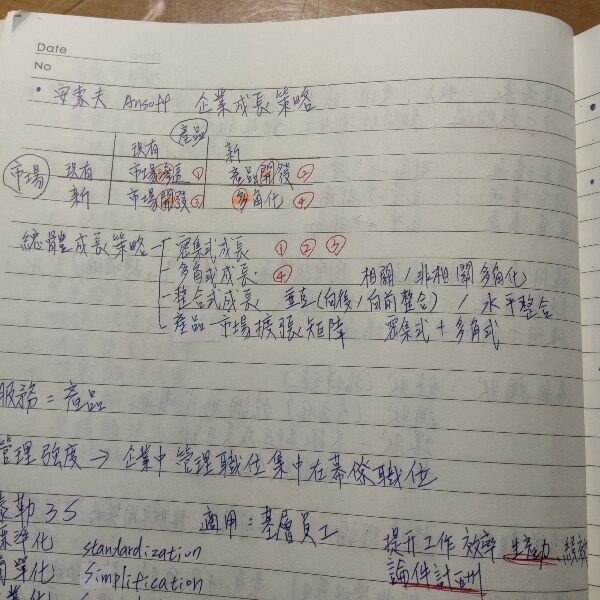 Date
No
• 安索夫 Ansoff 企業成長策略
產品
現有 新
市場 現有 市場滲透 ① 產品開發 ②
新 市場開發 ③ 多角化 ④
總體成長策略 密集式成長 ① ② ③
多角式成長 ④ 相關 / 非相關多角化
整合式成長 垂直(向後/向前整合) / 水平整合
產品市場擴張矩陣 密集式 + 多角式
服務 = 產品
管理強度 → 企業中管理職位集中在幕僚職位
泰勒3S 適用:基層員工
標準化 standardization 提升工作效率 生產力 績效
簡單化 Simplification 論件計酬